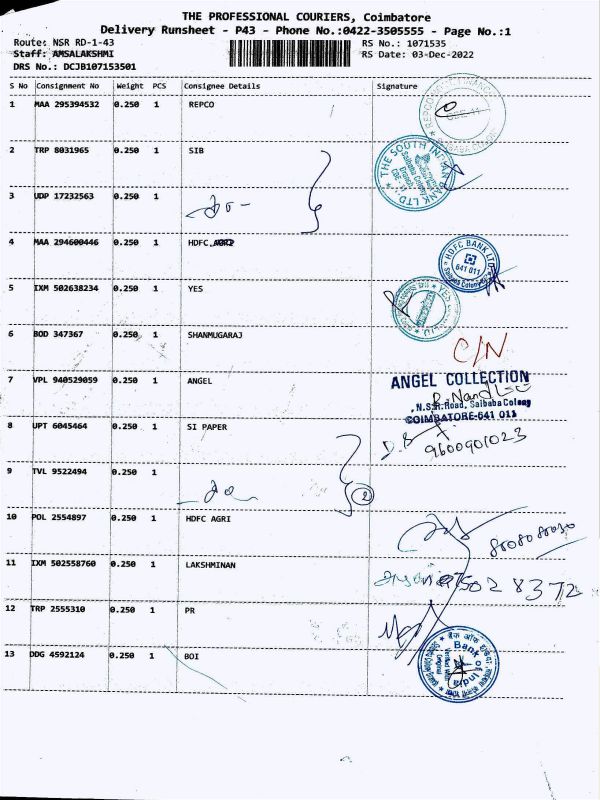 THE PROFESSIONAL COURIERS, Coimbatore
Delivery Runsheet - P43 - Phone No.:0422-3505555 - Page No.:1
Route: NSR RD-1-43
RS No.: 1071535
Staff: AMSALAKSHMI
RS Date: 03-Dec-2022
DRS No.: DCJB107153501
S No Consignment No Weight PCS Consignee Details Signature
1 MAA 295394532 0.250 1 REPCO
2 TRP 8031965 0.250 1 SIB
THE SOUTH INDIAN BANK LTD
3 UDP 17232563 0.250 1
4 MAA 294600446 0.250 1 HDFC AGRI
HDFC BANK LTD
641 011
5 IXM 502638234 0.250 1 YES
6 BOD 347367 0.250 1 SHANMUGARAJ
C/N
7 VPL 940529059 0.250 1 ANGEL
ANGEL COLLECTION
N.S.R. Road, Saibaba Colony
COIMBATORE-641 011
8 UPT 6045464 0.250 1 SI PAPER
9600901023
9 TVL 9522494 0.250 1
2
10 POL 2554897 0.250 1 HDFC AGRI
11 IXM 502558760 0.250 1 LAKSHMINAN
12 TRP 2555310 0.250 1 PR
13 DDG 4592124 0.250 1 BOI
Bank of India